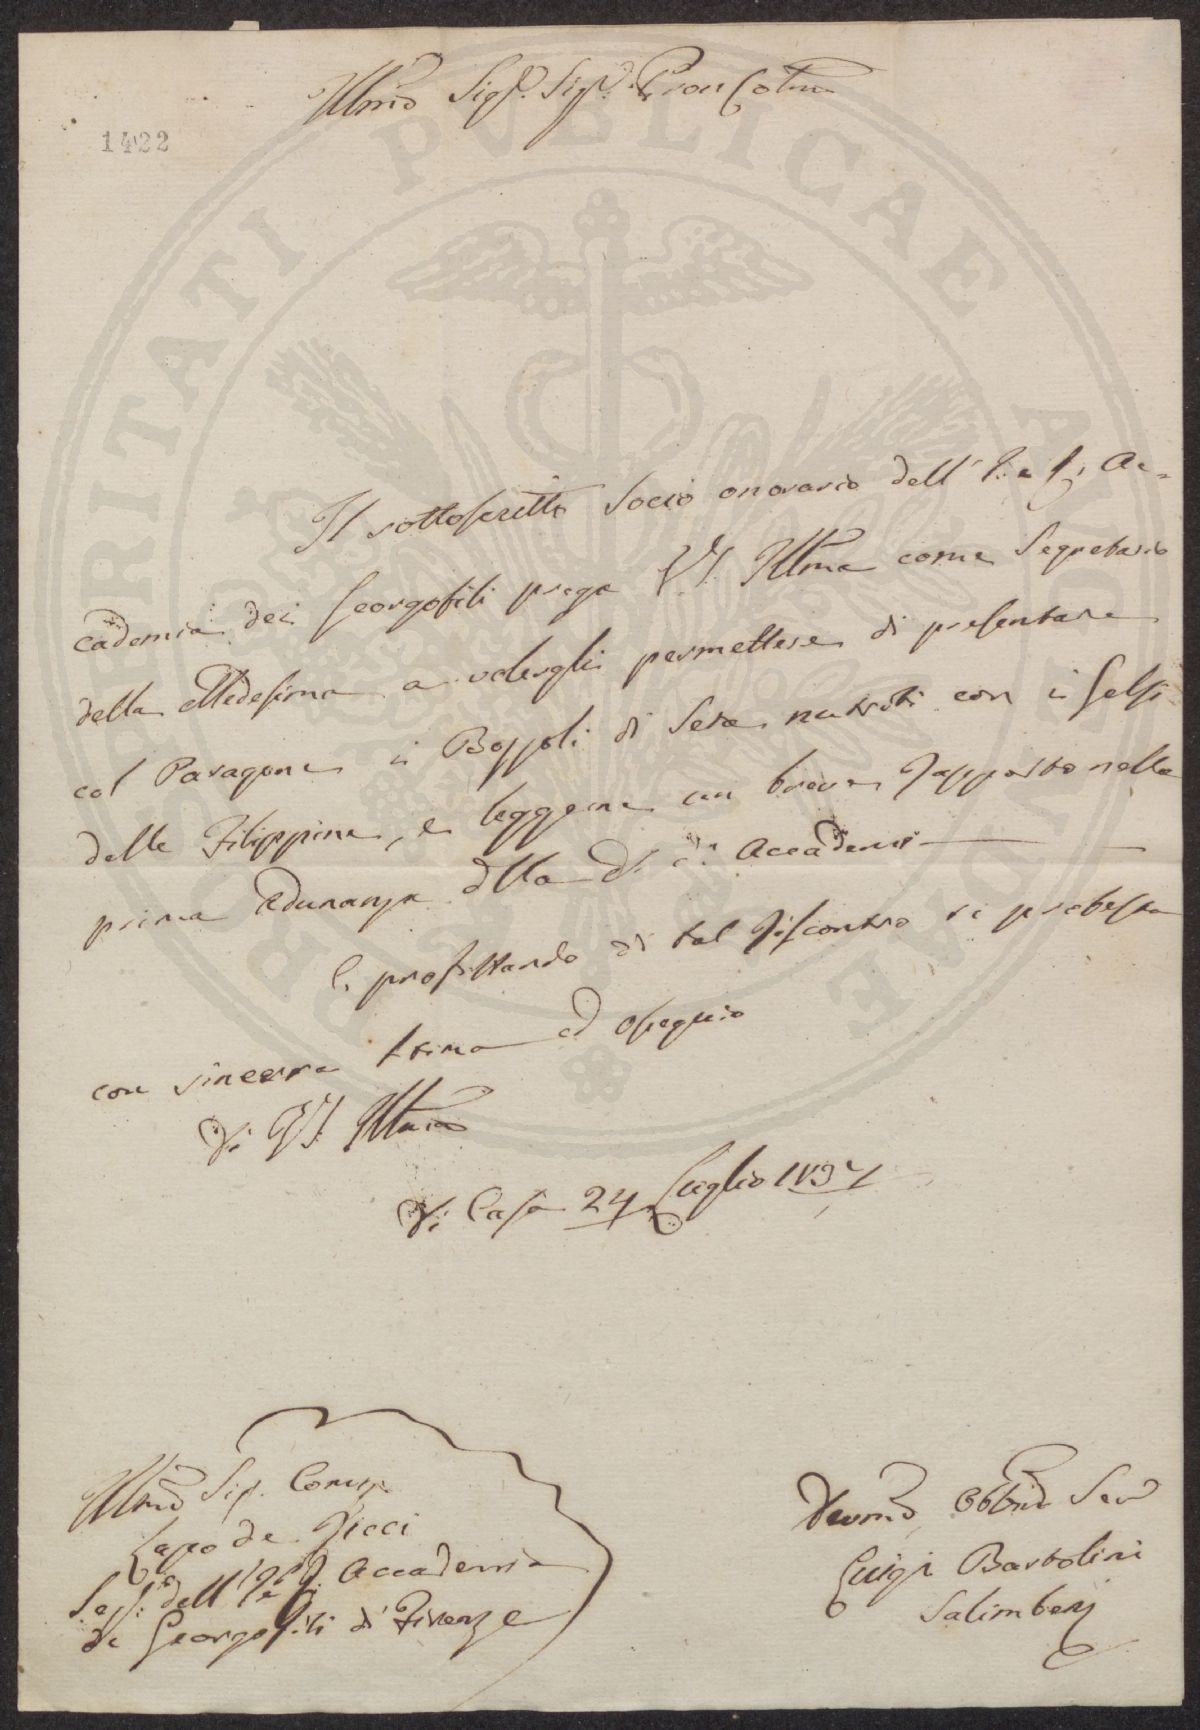 Illmo Sig.r Sig.r Pron Colmo
1422
Il sottoscritto Socio onorario dell' I. e R. Ac=
cademia dei Georgofili prega VS. Illma come Segretario
della Medesima a volergli permettere di presentare
col Paragone i Bozzoli di Seta nutriti con i Gelsi
delle Filippine, e leggerne un breve Rapporto nella
prima Adunanza della Accademia
E profittando di tal Riscontro si protesta
con sincera stima ed ossequio
Di VS. Illma
Di Casa 24 Luglio 1837
Illmo Sig.
Lapo de Ricci
Seg. dell' I. e R. Accademia
de Georgofili di Firenze
Devmo Obbmo Ser
Luigi Bartolini
Salimbeni
PROSPERITATI PVBLICAE AVGENDAE